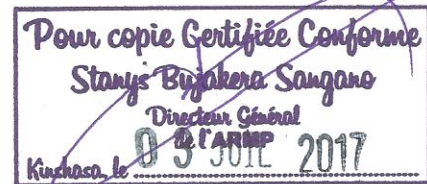 Pour copie Certifiée Conforme
Stanys Bujakera Sangano
Directeur Général
de l'ARMP
Kinshasa, le 03 JUIL 2017